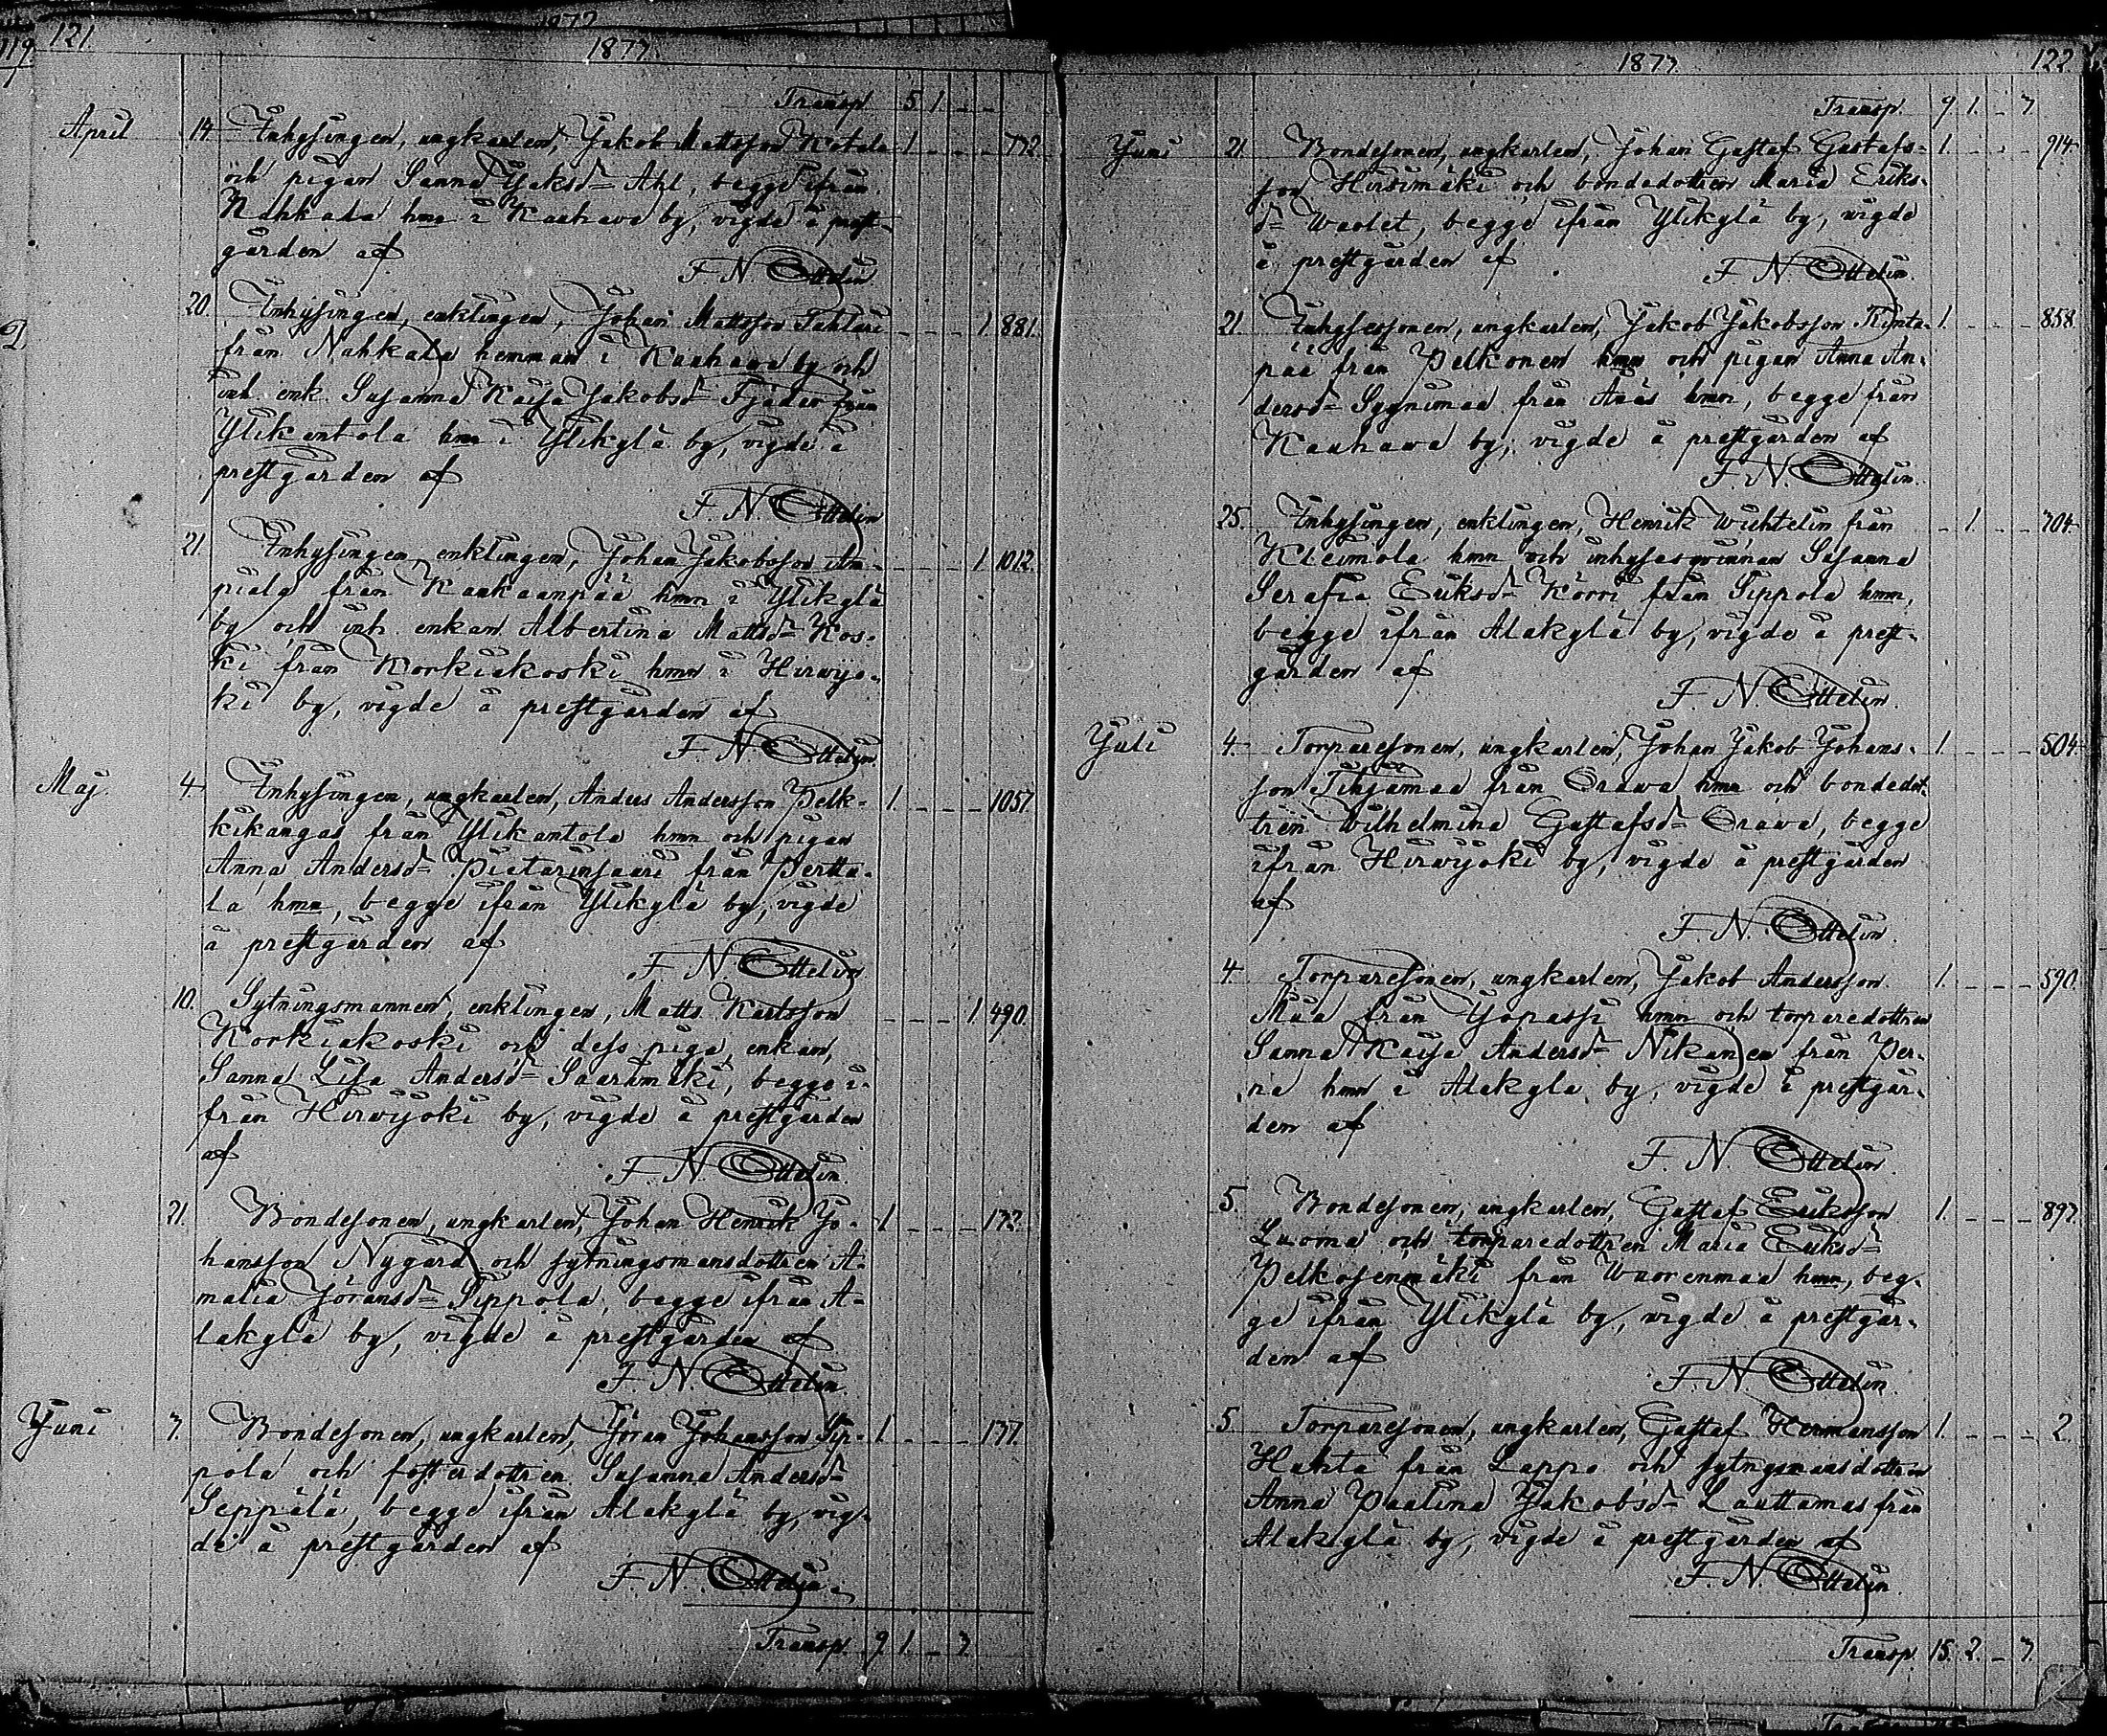 121.
1877.
Transp. 5. 1. - -
April 14. Inhysingen, ungkarlen, Jakob Mattsson Kotala 1. - - - 772.
och pigan Sanna Jaksd= Ahl, begge ifrån
Nahkala hmn i Kauhava by, vigde å prest-
gården af
F. N. Ottelin
20. Inhysingen, enklingen, Johan Mattsson Tahlari - - - 1. 881.
från Nahkala hemman i Kauhava by och
inh. enk. Susanna Kaisa Jakobsd= Fjäder från
Ylikantola hmn i Ylikylä by, vigde å
prestgården af
F. N. Ottelin
21. Inhysingen, enklingen, Johan Jakobsson Am- - - - 1. 1012.
piala från Kaukaanpää hmn i Ylikylä
by och inh. enkan Albertina Mattsd= Kos-
ki från Korkiakoski hmn i Hirvijo-
ki by, vigde å prestgården af
F. N. Ottelin.
Maj. 4. Inhysingen, ungkarlen, Anders Andersson Pelk- 1. - - - 1057.
kikangas från Ylikantola hmn och pigan
Anna Andersd= Pietarinsaari från Pertta-
la hmn, begge ifrån Ylikylä by, vigde
å prestgården af
F. N. Ottelin
10. Sytningsmannen, enklingen, Matts Karlsson - - - 1. 490.
Korkiakoski och dess piga, enkan,
Sanna Lisa Andersd= Saarimäki, begge i-
från Hirvijoki by, vigde å prestgården
af
F. N. Ottelin.
21. Bondesonen, ungkarlen, Johan Henrik Jo- 1. - - - 173.
hansson Nygård och sytningsmansdottren A-
malia Jöransd= Sippola, begge ifrån A-
lakylä by, vigde å prestgården af
F. N. Ottelin.
Juni 7. Bondesonen, ungkarlen, Jöran Johansson Sip- 1. - - - 177.
pola och fosterdottren Susanna Andersd=
Seppälä, begge ifrån Alakylä by, vig-
de å prestgården af
F. N. Ottelin.
Transp. 9. 1. - 7.
1877.
122.
Transp. 9. 1. - 7.
Juni 21. Bondesonen, ungkarlen, Johan Gustaf Gustafs- 1. - - - 914.
son Hirsimäki och bondedottren Maria Eriks-
d= Waolet, begge ifrån Ylikylä by, vigde
å prestgården af
F. N. Ottelin.
21. Inhysessonen, ungkarlen, Jakob Jakobsson Kynta- 1. - - - 858.
pää från Pelkonen hmn och pigan Anna An-
dersd= Syynimaa från Anäs hmn, begge från
Kauhava by, vigde å prestgården af
F. N. Ottelin.
25. Inhysingen, enklingen, Henrik Wichtelin från - 1. - - 704.
Kleimola hmn och inhysesqvinnan Susanna
Serafia Eriksd= Körri från Sippola hmn,
begge ifrån Alakylä by, vigde å prest-
gården af
F. N. Ottelin.
Juli 4. Torparesonen, ungkarlen, Johan Jakob Johans- 1. - - - 504.
son Tihjämaa från Orava hmn och bondedot-
tren Wilhelmina Gustafsd= Orava, begge
ifrån Hirvijoki by, vigde å prestgården
af
F. N. Ottelin.
4. Torparesonen, ungkarlen, Jakob Andersson 1. - - - 590.
Mua från Yöpassi hmn och torparedottren
Sanna Kaisa Andersd= Nikanen från Per-
na hmn i Alakylä by, vigde å prestgår-
den af
F. N. Ottelin.
5. Bondesonen, ungkarlen, Gustaf Eriksson 1. - - - 897.
Luoma och torparedottren Maria Eriksd=
Pelkosenmäki från Wuorenmaa hmn, beg-
ge ifrån Ylikylä by, vigde å prestgår-
den af
F. N. Ottelin.
5. Torparesonen, ungkarlen, Gustaf Hermansson 1. - - - 2.
Hahta från Lappo och sytngsmansdottren
Anna Paulina Jakobsd= Lauttamus från
Alakylä by, vigde å prestgården af
F. N. Ottelin.
Transp. 15. 2. - 7.